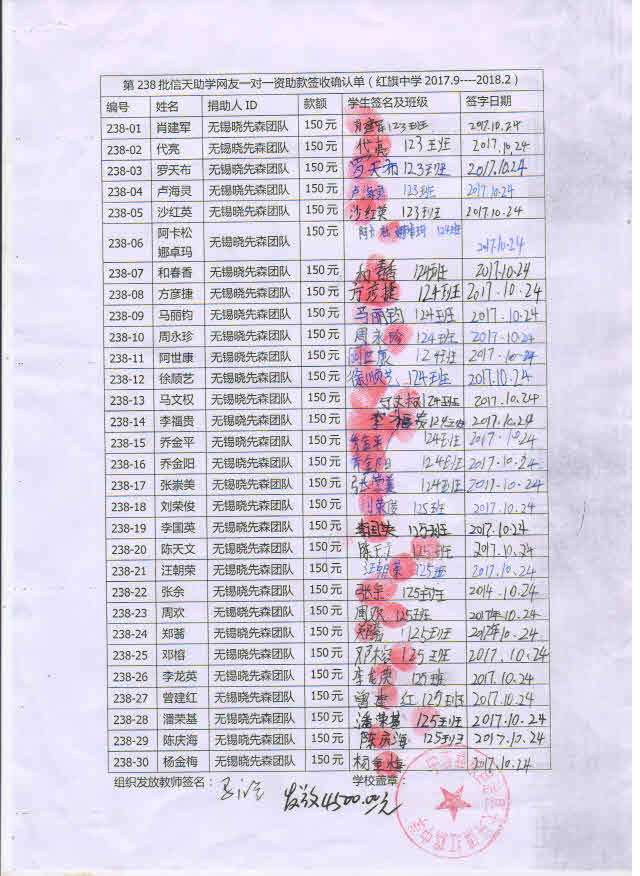 第 238 批信天助学网友一对一资助款签收确认单（红旗中学 2017.9----2018.2）
编号 姓名 捐助人 ID 款额 学生签名及班级 签字日期
238-01 肖建军 无锡晓先森团队 150 元 肖建军 123班 2017.10.24
238-02 代亮 无锡晓先森团队 150 元 代亮 123班 2017.10.24
238-03 罗天布 无锡晓先森团队 150 元 罗天布 123班 2017.10.24
238-04 卢海灵 无锡晓先森团队 150 元 卢海灵 123班 2017.10.24
238-05 沙红英 无锡晓先森团队 150 元 沙红英 123班 2017.10.24
238-06 阿卡松娜卓玛 无锡晓先森团队 150 元 124班 2017.10.24
238-07 和春香 无锡晓先森团队 150 元 124班 2017.10.24
238-08 方彦捷 无锡晓先森团队 150 元 方彦捷 124班 2017.10.24
238-09 马丽钧 无锡晓先森团队 150 元 马丽钧 124班 2017.10.24
238-10 周永珍 无锡晓先森团队 150 元 周永珍 124班 2017.10.24
238-11 阿世康 无锡晓先森团队 150 元 阿世康 124班 2017.10.24
238-12 徐顺艺 无锡晓先森团队 150 元 徐顺艺 124班 2017.10.24
238-13 马文权 无锡晓先森团队 150 元 马文权 124班 2017.10.24
238-14 李福贵 无锡晓先森团队 150 元 李福贵 124班 2017.10.24
238-15 乔金平 无锡晓先森团队 150 元 乔金平 124班 2017.10.24
238-16 乔金阳 无锡晓先森团队 150 元 乔金阳 124班 2017.10.24
238-17 张崇美 无锡晓先森团队 150 元 张崇美 124班 2017.10.24
238-18 刘荣俊 无锡晓先森团队 150 元 刘荣俊 125班 2017.10.24
238-19 李国英 无锡晓先森团队 150 元 李国英 125班 2017.10.24
238-20 陈天文 无锡晓先森团队 150 元 陈天文 125班 2017.10.24
238-21 汪朝荣 无锡晓先森团队 150 元 汪朝荣 125班 2017.10.24
238-22 张余 无锡晓先森团队 150 元 张余 125班 2014.10.24
238-23 周欢 无锡晓先森团队 150 元 周欢 125班 2017年10.24
238-24 郑蕊 无锡晓先森团队 150 元 125班 2017年10.24
238-25 邓榕 无锡晓先森团队 150 元 邓榕 125班 2017.10.24
238-26 李龙英 无锡晓先森团队 150 元 李龙英 125班 2017.10.24
238-27 曾建红 无锡晓先森团队 150 元 曾建红 125班 2017.10.24
238-28 潘荣基 无锡晓先森团队 150 元 潘荣基 125班 2017.10.24
238-29 陈庆海 无锡晓先森团队 150 元 陈庆海 125班 2017.10.24
238-30 杨金梅 无锡晓先森团队 150 元 杨金梅 2017.10.24
组织发放教师签名： 学校盖章：
发放4500.00元